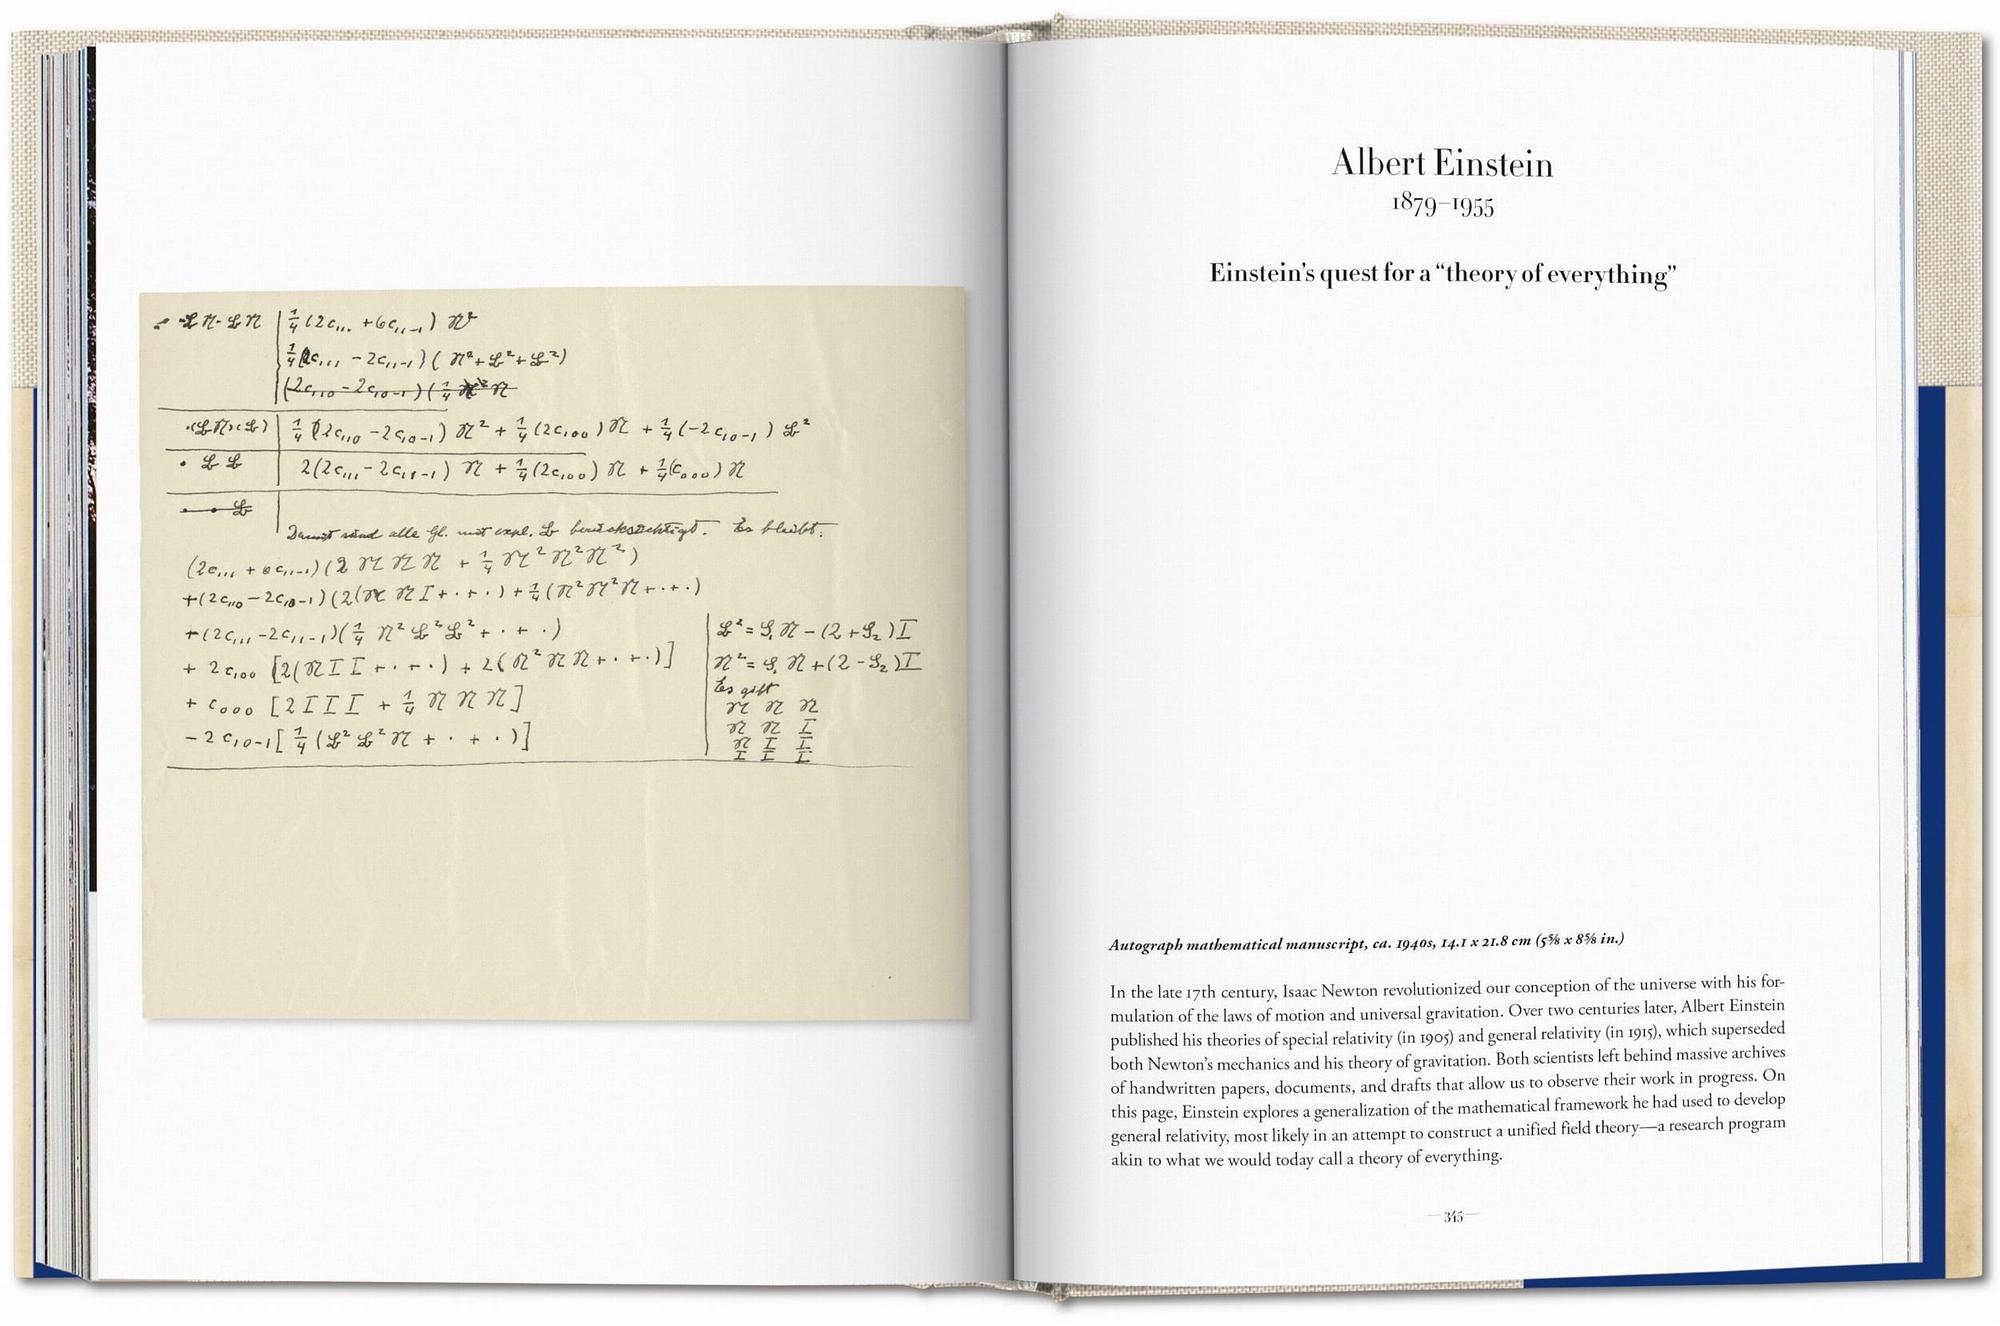 · 𝔏 𝔑 · 𝔏 𝔑 | ¼ (2c₁₁₁ + 6c₁₁₋₁) 𝔑²
¼ (2c₁₁₁ − 2c₁₁₋₁) ( 𝔑² + 𝔏² + 𝔏²)
(2c₁₁₀ − 2c₁₀₋₁) (¼ 𝔑² 𝔑
·(𝔏𝔑)(𝔏) | ¼ (2c₁₁₀ − 2c₁₀₋₁) 𝔑² + ¼ (2c₁₀₀) 𝔑 + ¼ (−2c₁₀₋₁) 𝔏²
· 𝔏 𝔏 | 2(2c₁₁₁ − 2c₁₁₋₁) 𝔑 + ¼ (2c₁₀₀) 𝔑 + ¼ (c₀₀₀) 𝔑
· · 𝔏
Damit sind alle Gl. mit expl. 𝔏 berücksichtigt. Es bleibt:
(2c₁₁₁ + 6c₁₁₋₁) (2 𝔑 𝔑 𝔑 + ¼ 𝔑² 𝔑² 𝔑²)
+(2c₁₁₀ − 2c₁₀₋₁) (2(𝔑 𝔑 I + · + ·) + ¼ (𝔑² 𝔑² 𝔑 + · + ·)
+(2c₁₁₁ − 2c₁₁₋₁) (¼ 𝔑² 𝔏² 𝔏² + · + ·)
+ 2c₁₀₀ [2(𝔑 I I + · + ·) + 2(𝔑² 𝔑 𝔑 + · + ·)]
+ c₀₀₀ [2 I I I + ¼ 𝔑 𝔑 𝔑]
− 2c₁₀₋₁ [¼ (𝔏² 𝔏² 𝔑 + · + ·)]
𝔏² = S₁ 𝔑 − (2 + S₂) I
𝔑² = S₁ 𝔑 + (2 − S₂) I
Es gibt
𝔑 𝔑 𝔑
𝔑 𝔑 I
𝔑 I I
I I I
Albert Einstein
1879–1955
Einstein’s quest for a “theory of everything”
Autograph mathematical manuscript, ca. 1940s, 14.1 x 21.8 cm (5⅝ x 8⅝ in.)
In the late 17th century, Isaac Newton revolutionized our conception of the universe with his for-
mulation of the laws of motion and universal gravitation. Over two centuries later, Albert Einstein
published his theories of special relativity (in 1905) and general relativity (in 1915), which superseded
both Newton’s mechanics and his theory of gravitation. Both scientists left behind massive archives
of handwritten papers, documents, and drafts that allow us to observe their work in progress. On
this page, Einstein explores a generalization of the mathematical framework he had used to develop
general relativity, most likely in an attempt to construct a unified field theory—a research program
akin to what we would today call a theory of everything.
—345—